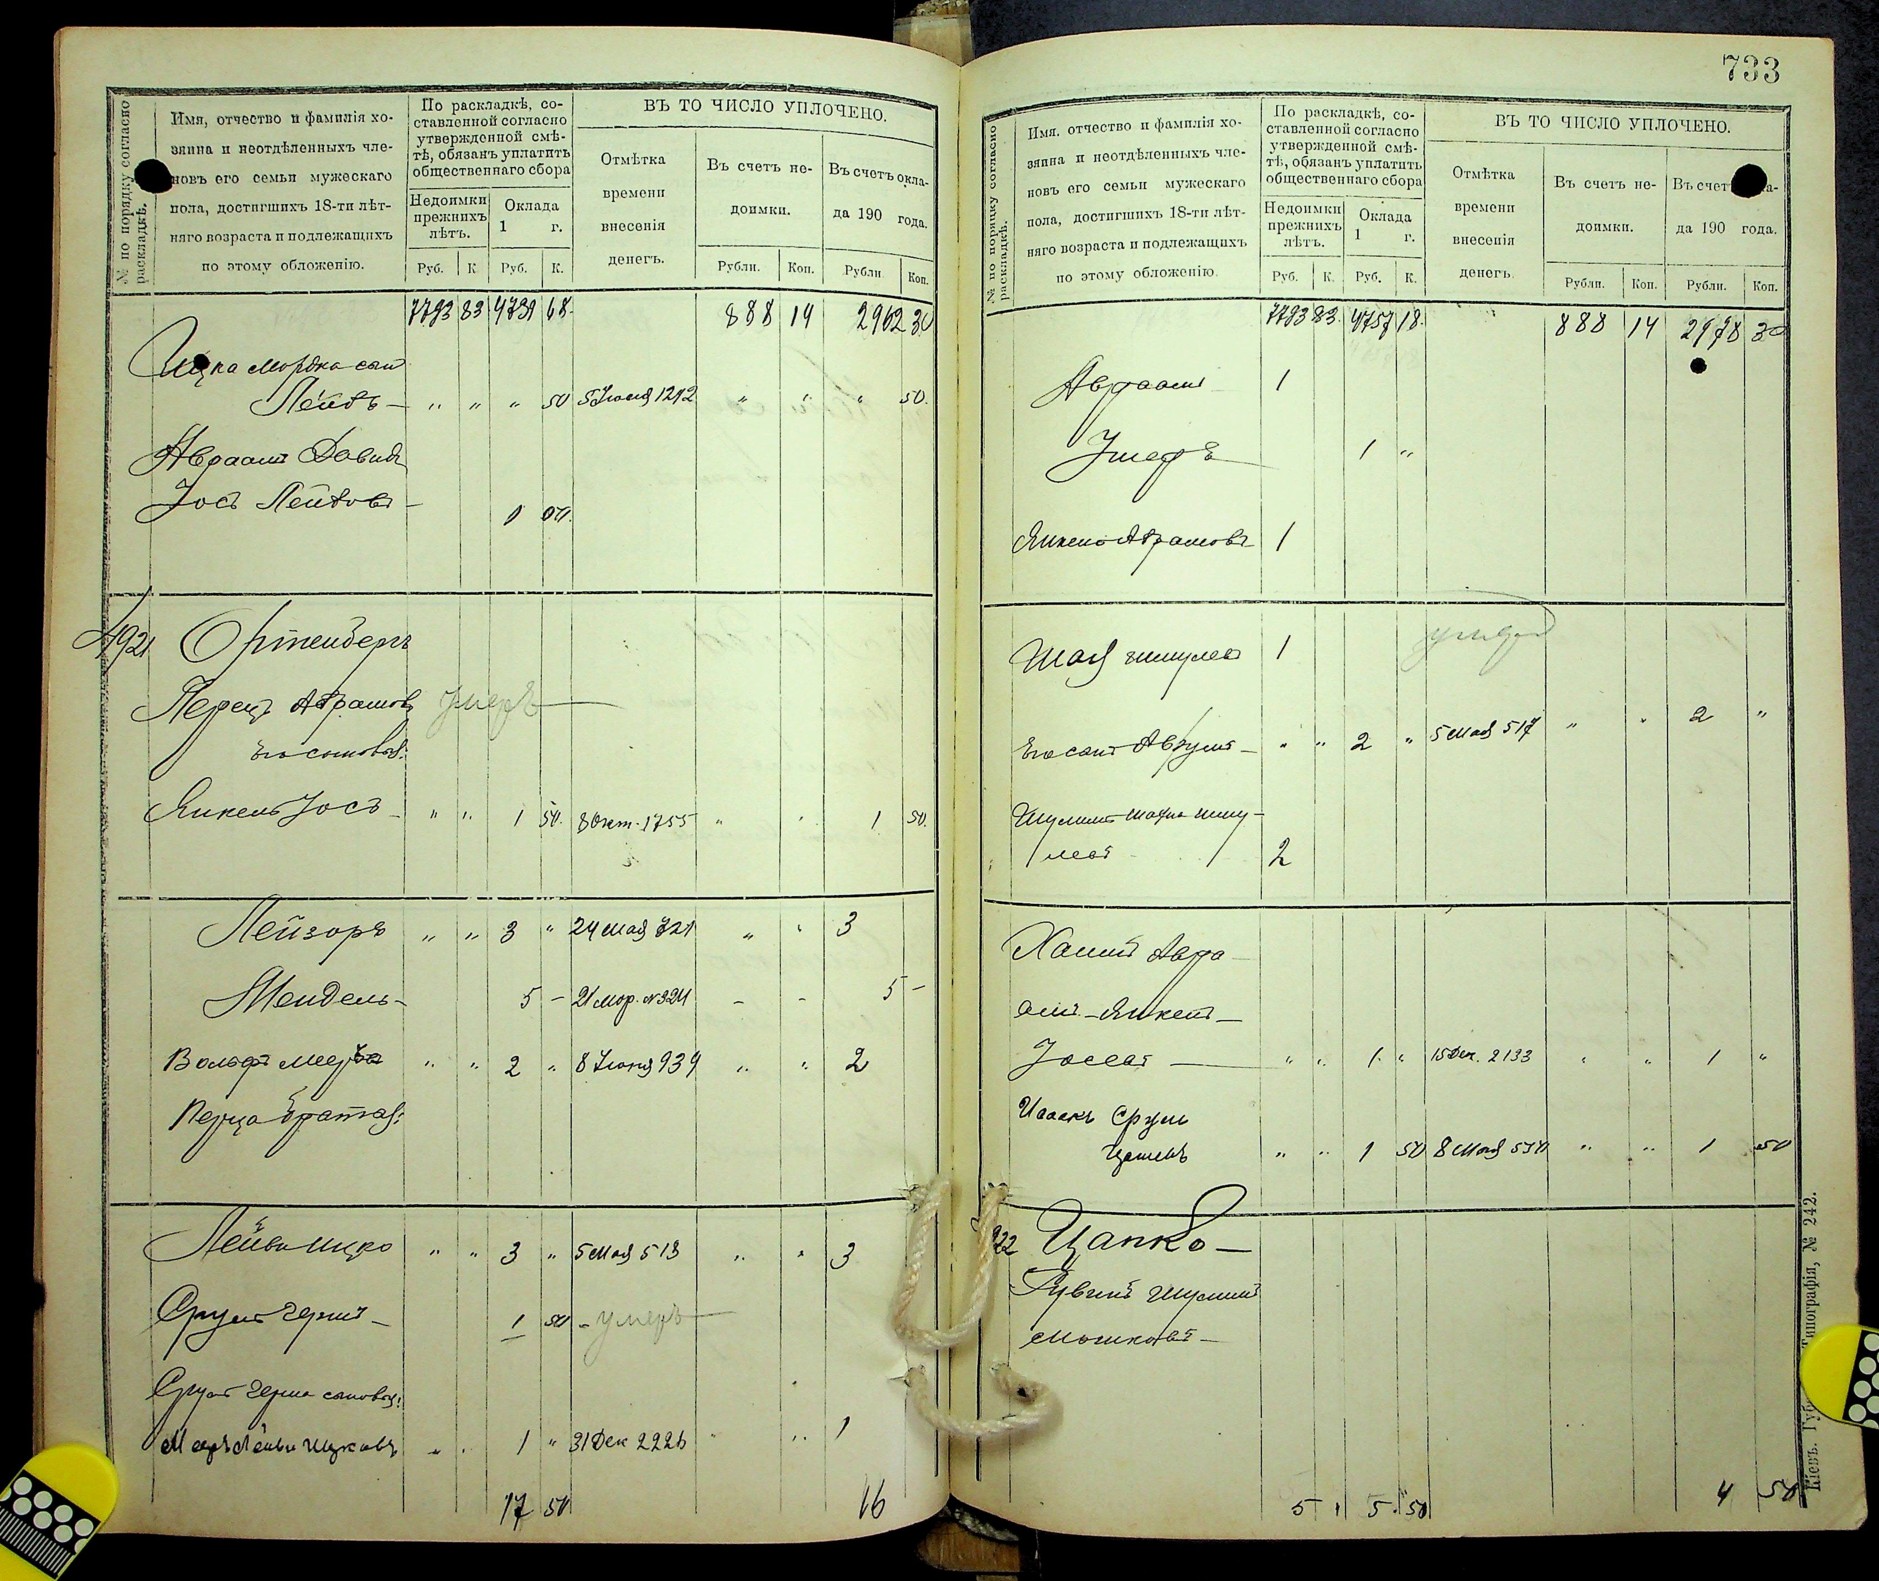 № по порядку согласно раскладкѣ.
Имя, отчество и фамилія хо-
зяина и неотдѣленныхъ чле-
новъ его семьи мужескаго
пола, достигшихъ 18-ти лѣт-
няго возраста и подлежащихъ
по этому обложенію.
По раскладкѣ, со-
ставленной согласно
утвержденной смѣ-
тѣ, обязанъ уплатить
общественнаго сбора
Недоимки
прежнихъ
лѣтъ.
Оклада
1 г.
Руб. К. Руб. К.
ВЪ ТО ЧИСЛО УПЛОЧЕНО.
Отмѣтка
времени
внесенія
денегъ.
Въ счетъ не-
доимки.
Въ счетъ окла-
да 190 года.
Рубли. Коп. Рубли Коп.
7793 83 4739 68 888 14 2962 30
Ицка Мордка сын
Лейбъ — " " " 50 5 Іюля 1212 " " " 50
Авраамъ Давидъ
Іосъ Лейбовъ —
4921 Ортенбергъ
Перецъ Абрамовъ умеръ
его сыновья:
Янкель Іосъ — " " 1 50 8 Окт. 1755 " " 1 50
Лейзоръ " " 3 " 24 Мая 721 " " 3
Мендель — 5 — 21 Мар. № 324 — — 5 —
Вольфъ Меер " " 2 " 8 Іюня 939 " " 2
Перца братья:
Лейби Ицко " " 3 " 5 Мая 513 " " 3
Сруль Герш — 1 50 — умеръ
Сруля Герша сыновья:
Меер Лейби Ицковъ " " 1 " 31 Дек 2226 " " 1
17 50 16
733
№ по порядку согласно раскладкѣ.
Имя, отчество и фамилія хо-
зяина и неотдѣленныхъ чле-
новъ его семьи мужескаго
пола, достигшихъ 18-ти лѣт-
няго возраста и подлежащихъ
по этому обложенію.
По раскладкѣ, со-
ставленной согласно
утвержденной смѣ-
тѣ, обязанъ уплатить
общественнаго сбора
Недоимки
прежнихъ
лѣтъ.
Оклада
1 г.
Руб. К. Руб. К.
ВЪ ТО ЧИСЛО УПЛОЧЕНО.
Отмѣтка
времени
внесенія
денегъ.
Въ счетъ не-
доимки.
Въ счет
да 190 года.
Рубли. Коп. Рубли. Коп.
7793 83 4757 18 888 14 2978 30
Авраам 1
Умеръ 1 "
Янкель Абрамовъ 1
Шая Шмулев 1 умеръ
Его сынъ Аврумъ — " " 2 " 5 Мая 517 " " 2 "
2
Хаимъ Авра-
амъ — Янкель —
Іосевъ — " " 1 " 15 Дек. 2133 " " 1 "
Исаакъ Сруль
" " 1 50 8 Мая 530 " " 1 50
922 Цапко —
Рувинъ Шулимъ
Мошковъ —
5 " 5 50 4 50
Кіевъ. Губ. Типографія, № 242.